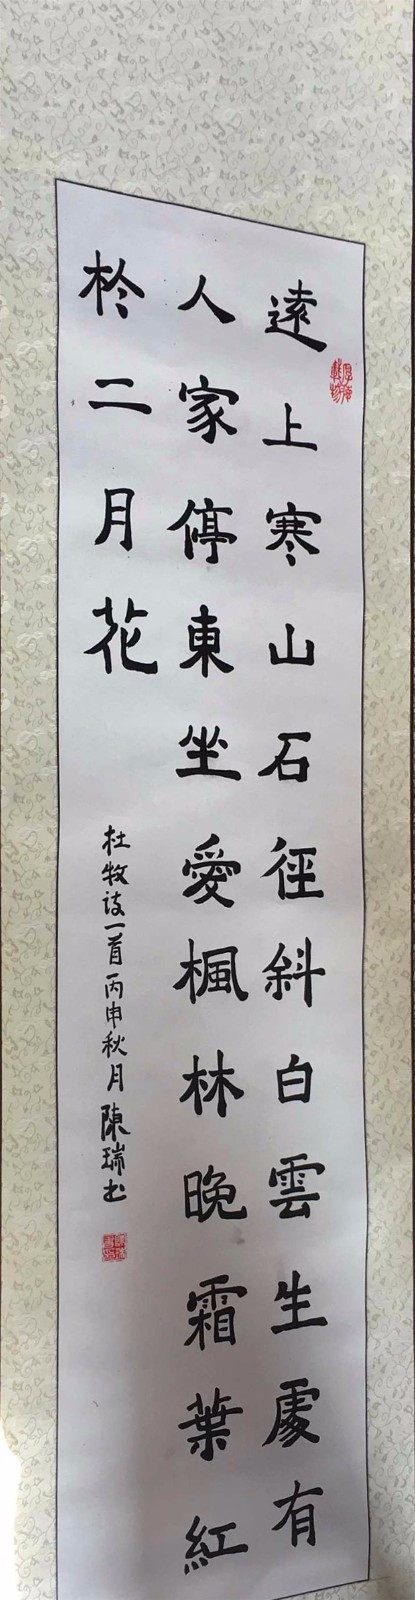 厚德載物
遠上寒山石徑斜白雲生處有
人家停東坐愛楓林晚霜葉紅
於二月花
杜牧诗一首丙申秋月陳瑞书